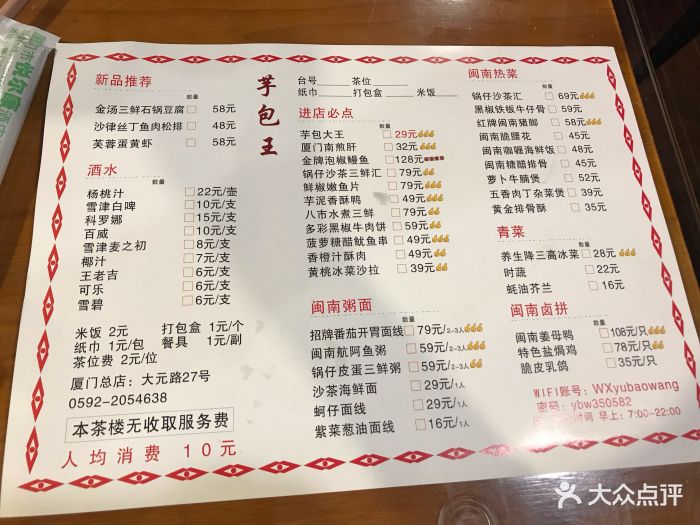 新品推荐
数量
金汤三鲜石锅豆腐 58元
沙律丝丁鱼肉松排 48元
芙蓉蛋黄虾 58元
酒水
数量
杨桃汁 22元/壶
雪津白啤 10元/支
科罗娜 15元/支
百威 10元/支
雪津麦之初 8元/支
椰汁 7元/支
王老吉 6元/支
可乐 6元/支
雪碧 6元/支
米饭 2元 打包盒 1元/个
纸巾 1元/包 餐具 1元/副
茶位费 2元/位
厦门总店：大元路27号
0592-2054638
本茶楼无收取服务费
人均消费 10元
芋包王
台号 茶位
纸巾 打包盒 米饭
进店必点
数量
芋包大王 29元
厦门南煎肝 32元
金牌泡椒鳗鱼 128元
锅仔沙茶三鲜汇 79元
鲜椒嫩鱼片 79元
芋泥香酥鸭 49元
八市水煮三鲜 79元
多彩黑椒牛肉饼 59元
菠萝糖醋鱿鱼串 49元
香橙汁酥肉 49元
黄桃冰菜沙拉 39元
闽南粥面
数量
招牌番茄开胃面线 79元/2-3人
闽南航阿鱼粥 59元/2-3人
锅仔皮蛋三鲜粥 59元/2-3人
沙茶海鲜面 29元/1人
蚵仔面线 29元/1人
紫菜葱油面线 16元/1人
闽南热菜
数量
锅仔沙茶汇 69元
黑椒铁板牛仔骨 59元
红牌闽南猪脚 58元
闽南脆腰花 45元
闽南咖喱海鲜饭 48元
闽南糖醋排骨 45元
萝卜牛腩煲 52元
五香肉丁杂菜煲 39元
黄金排骨酥 35元
青菜
数量
养生降三高冰菜 28元
时蔬 22元
蚝油芥兰 16元
闽南卤拼
数量
闽南姜母鸭 108元/只
特色盐焗鸡 78元/只
脆皮乳鸽 35元/只
WIFI账号：WXyubaowang
密码：ybw350582
时间 早上：7:00-22:00
大众点评